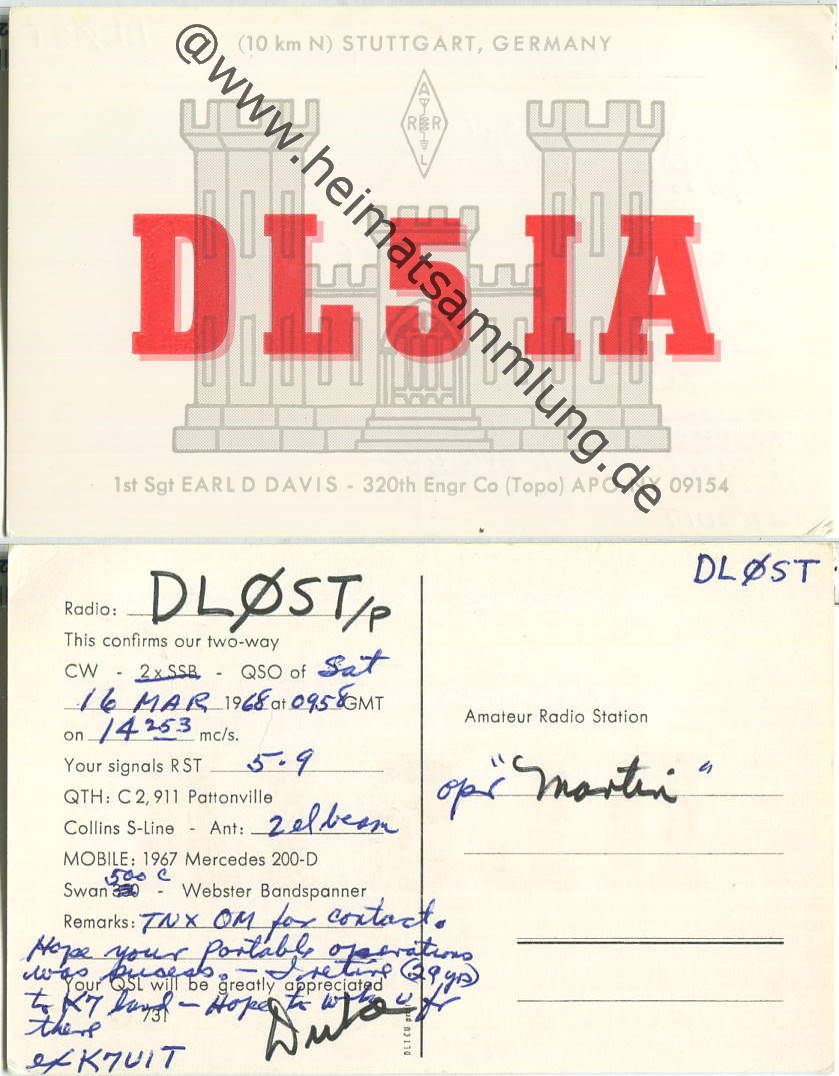 (10 km N) STUTTGART, GERMANY
A
R R
L
DL5IA
@www.heimatsammlung.de
1st Sgt EARL D DAVIS - 320th Engr Co (Topo) APO NY 09154
DLØST
Radio: DLØST/P
This confirms our two-way
CW - 2xSSB - QSO of Sat
16 MAR 1968 at 0958 GMT
on 14253 mc/s.
Your signals RST 5-9
QTH: C2, 911 Pattonville
Collins S-Line - Ant: 2 el beam
MOBILE: 1967 Mercedes 200-D
500 C
Swan 350 - Webster Bandspanner
Remarks: TNX OM for contact.
Hope your portable operations
was sucess. - I retire (29 yrs)
Your QSL will be greatly appreciated
to K7 land - Hope to wrk u fr
73!
there
ex K7UIT
Amateur Radio Station
opr "Martin"